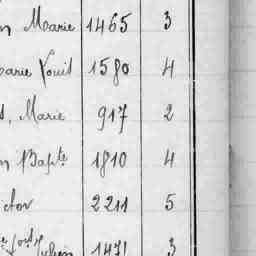 n Marie 1465 3
Marie Louis 1580 4
, Marie 917 2
n Bapte 1810 4
ctor 2211 5
1471 3